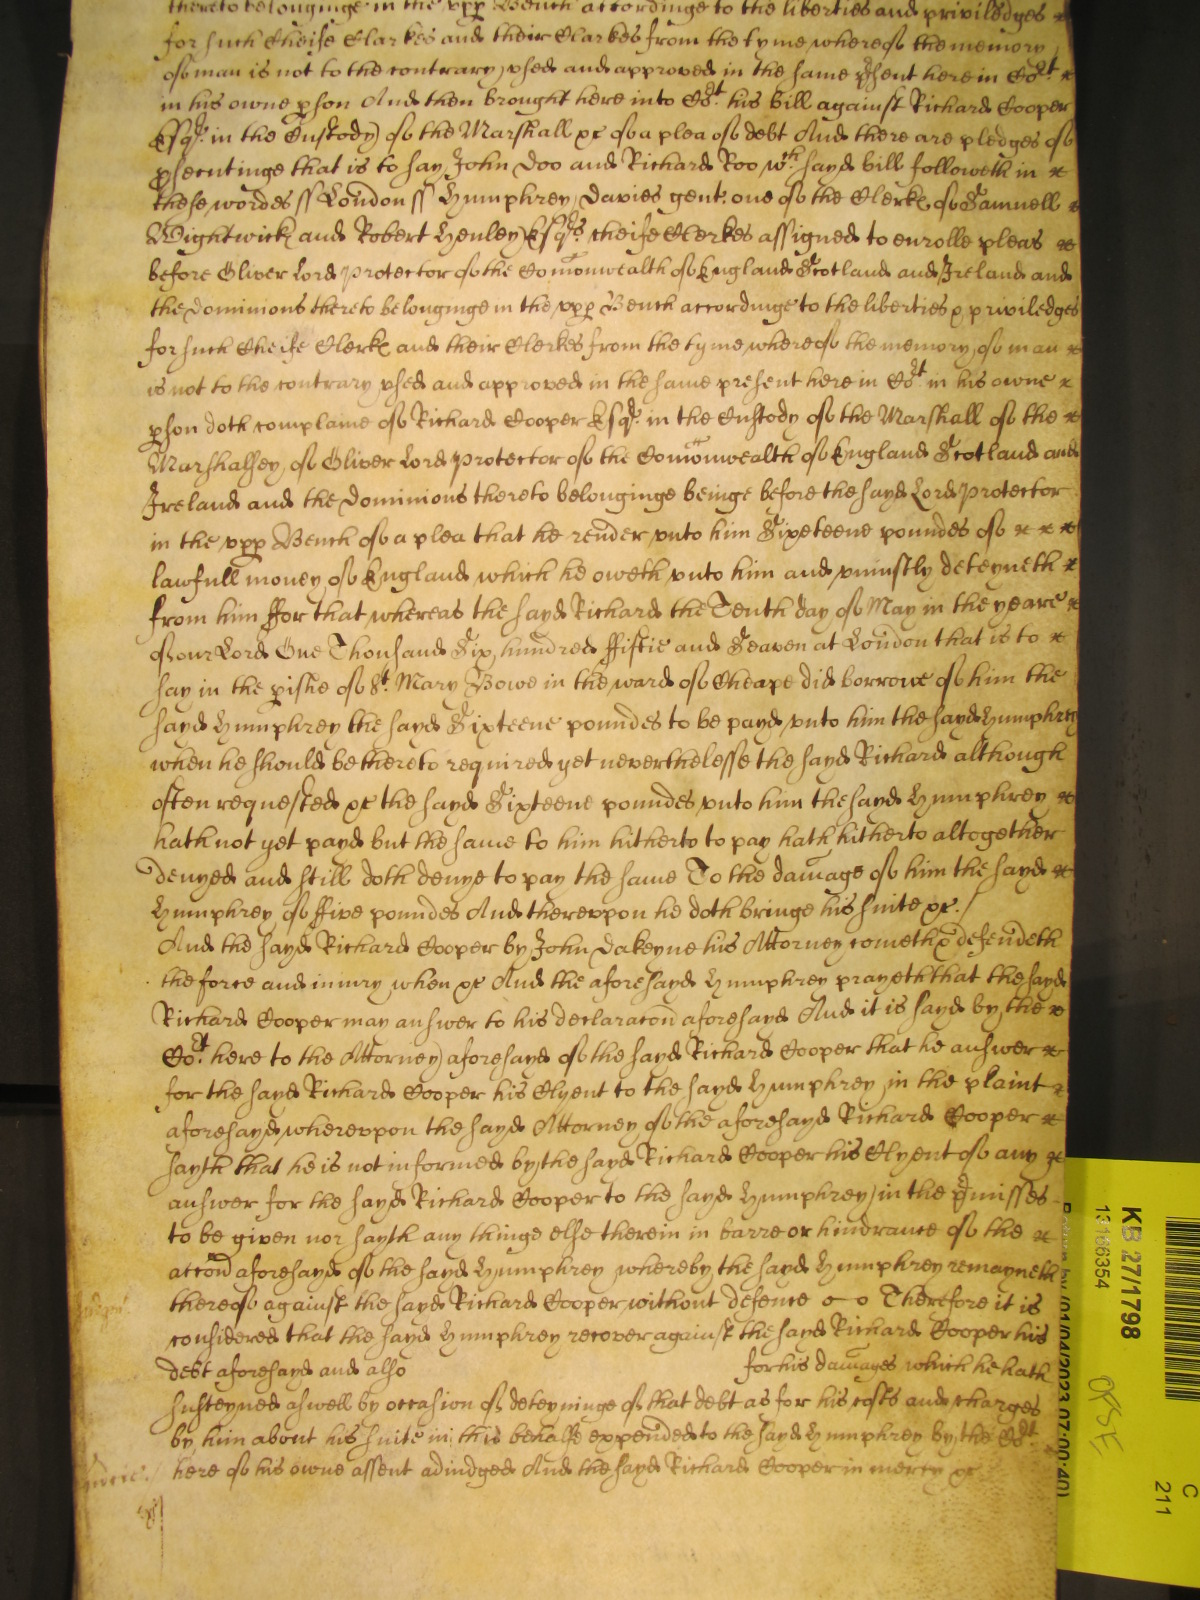 thereto belonginge in the upp Bench accordinge to the liberties and priviledges
for such Cheife Clarkes and their Clarkes from the tyme whereof the memory
of man is not to the contrary used and approved in the same psent here in Cort
in his owne pson And then brought here into Cort his bill against Richard Cooper
Esqr in the Custody of the Marshall &c of a plea of debt And there are pledges of
psecutinge that is to say John Doo and Richard Roo wch sayd bill followeth in
these wordes ss London ss Humphrey Davies gent one of the Clerkes of Samuell
Wightwick and Robert Henley Esqrs cheife Clerkes assigned to enrolle pleas
before Oliver Lord Protector of the Comonwealth of England Scotland and Ireland and
the Dominions thereto belonginge in the upp Bench accordinge to the liberties & priviledges
for such Cheife Clerkes and their Clerkes from the tyme whereof the memory of man
is not to the contrary used and approved in the same present here in Cort in his owne
pson doth complaine of Richard Cooper Esqr in the Custody of the Marshall of the
Marshalsey of Oliver Lord Protector of the Comonwealth of England Scotland and
Ireland and the Dominions thereto belonginge beinge before the sayd Lord Protector
in the upp Bench of a plea that he render unto him Sixteene poundes of
lawfull money of England which he oweth unto him and uniustly deteyneth
from him ffor that whereas the sayd Richard the Tenth day of May in the yeare
of our Lord One Thousand Six hundred ffiftie and Seaven at London that is to
say in the pishe of St Mary Bowe in the ward of Cheape did borrowe of him the
sayd Humphrey the sayd Sixteene poundes to be payd unto him the sayd Humphrey
when he should be thereto required yet neverthelesse the sayd Richard although
often requested &c the sayd Sixteene poundes unto him the sayd Humphrey
hath not yet payd but the same to him hitherto to pay hath hitherto altogether
denyed and still doth denye to pay the same To the damage of him the sayd
Humphrey of ffive poundes And thereuppon he doth bringe his suite &c./
And the sayd Richard Cooper by John Dakeyne his Attorney cometh & defendeth
the force and iniury when &c And the aforesayd Humphrey prayeth that the sayd
Richard Cooper may answer to his declaracon aforesayd And it is sayd by the
Cort here to the Attorney aforesayd of the sayd Richard Cooper that he answer
for the sayd Richard Cooper his Clyent to the sayd Humphrey in the plaint
aforesayd whereuppon the sayd Attorney of the aforesayd Richard Cooper
sayth that he is not informed by the sayd Richard Cooper his Clyent of any
answer for the sayd Richard Cooper to the sayd Humphrey in the pmisses
to be given nor sayth any thinge else therein in barre or hindrance of the
accon aforesayd of the sayd Humphrey whereby the sayd Humphrey remayneth
thereof against the sayd Richard Cooper without defence Therefore it is
considered that the sayd Humphrey recover against the sayd Richard Cooper his
debt aforesayd and also for his damages which he hath
susteyned aswell by occasion of deteyninge of that debt as for his costs and charges
by him about his suite in this behalfe expended to the sayd Humphrey by the Cort
here of his owne assent adiudged And the sayd Richard Cooper in mercy &c
KB 27/1798
13166354
01/04/2023 07:00:40)
C
211